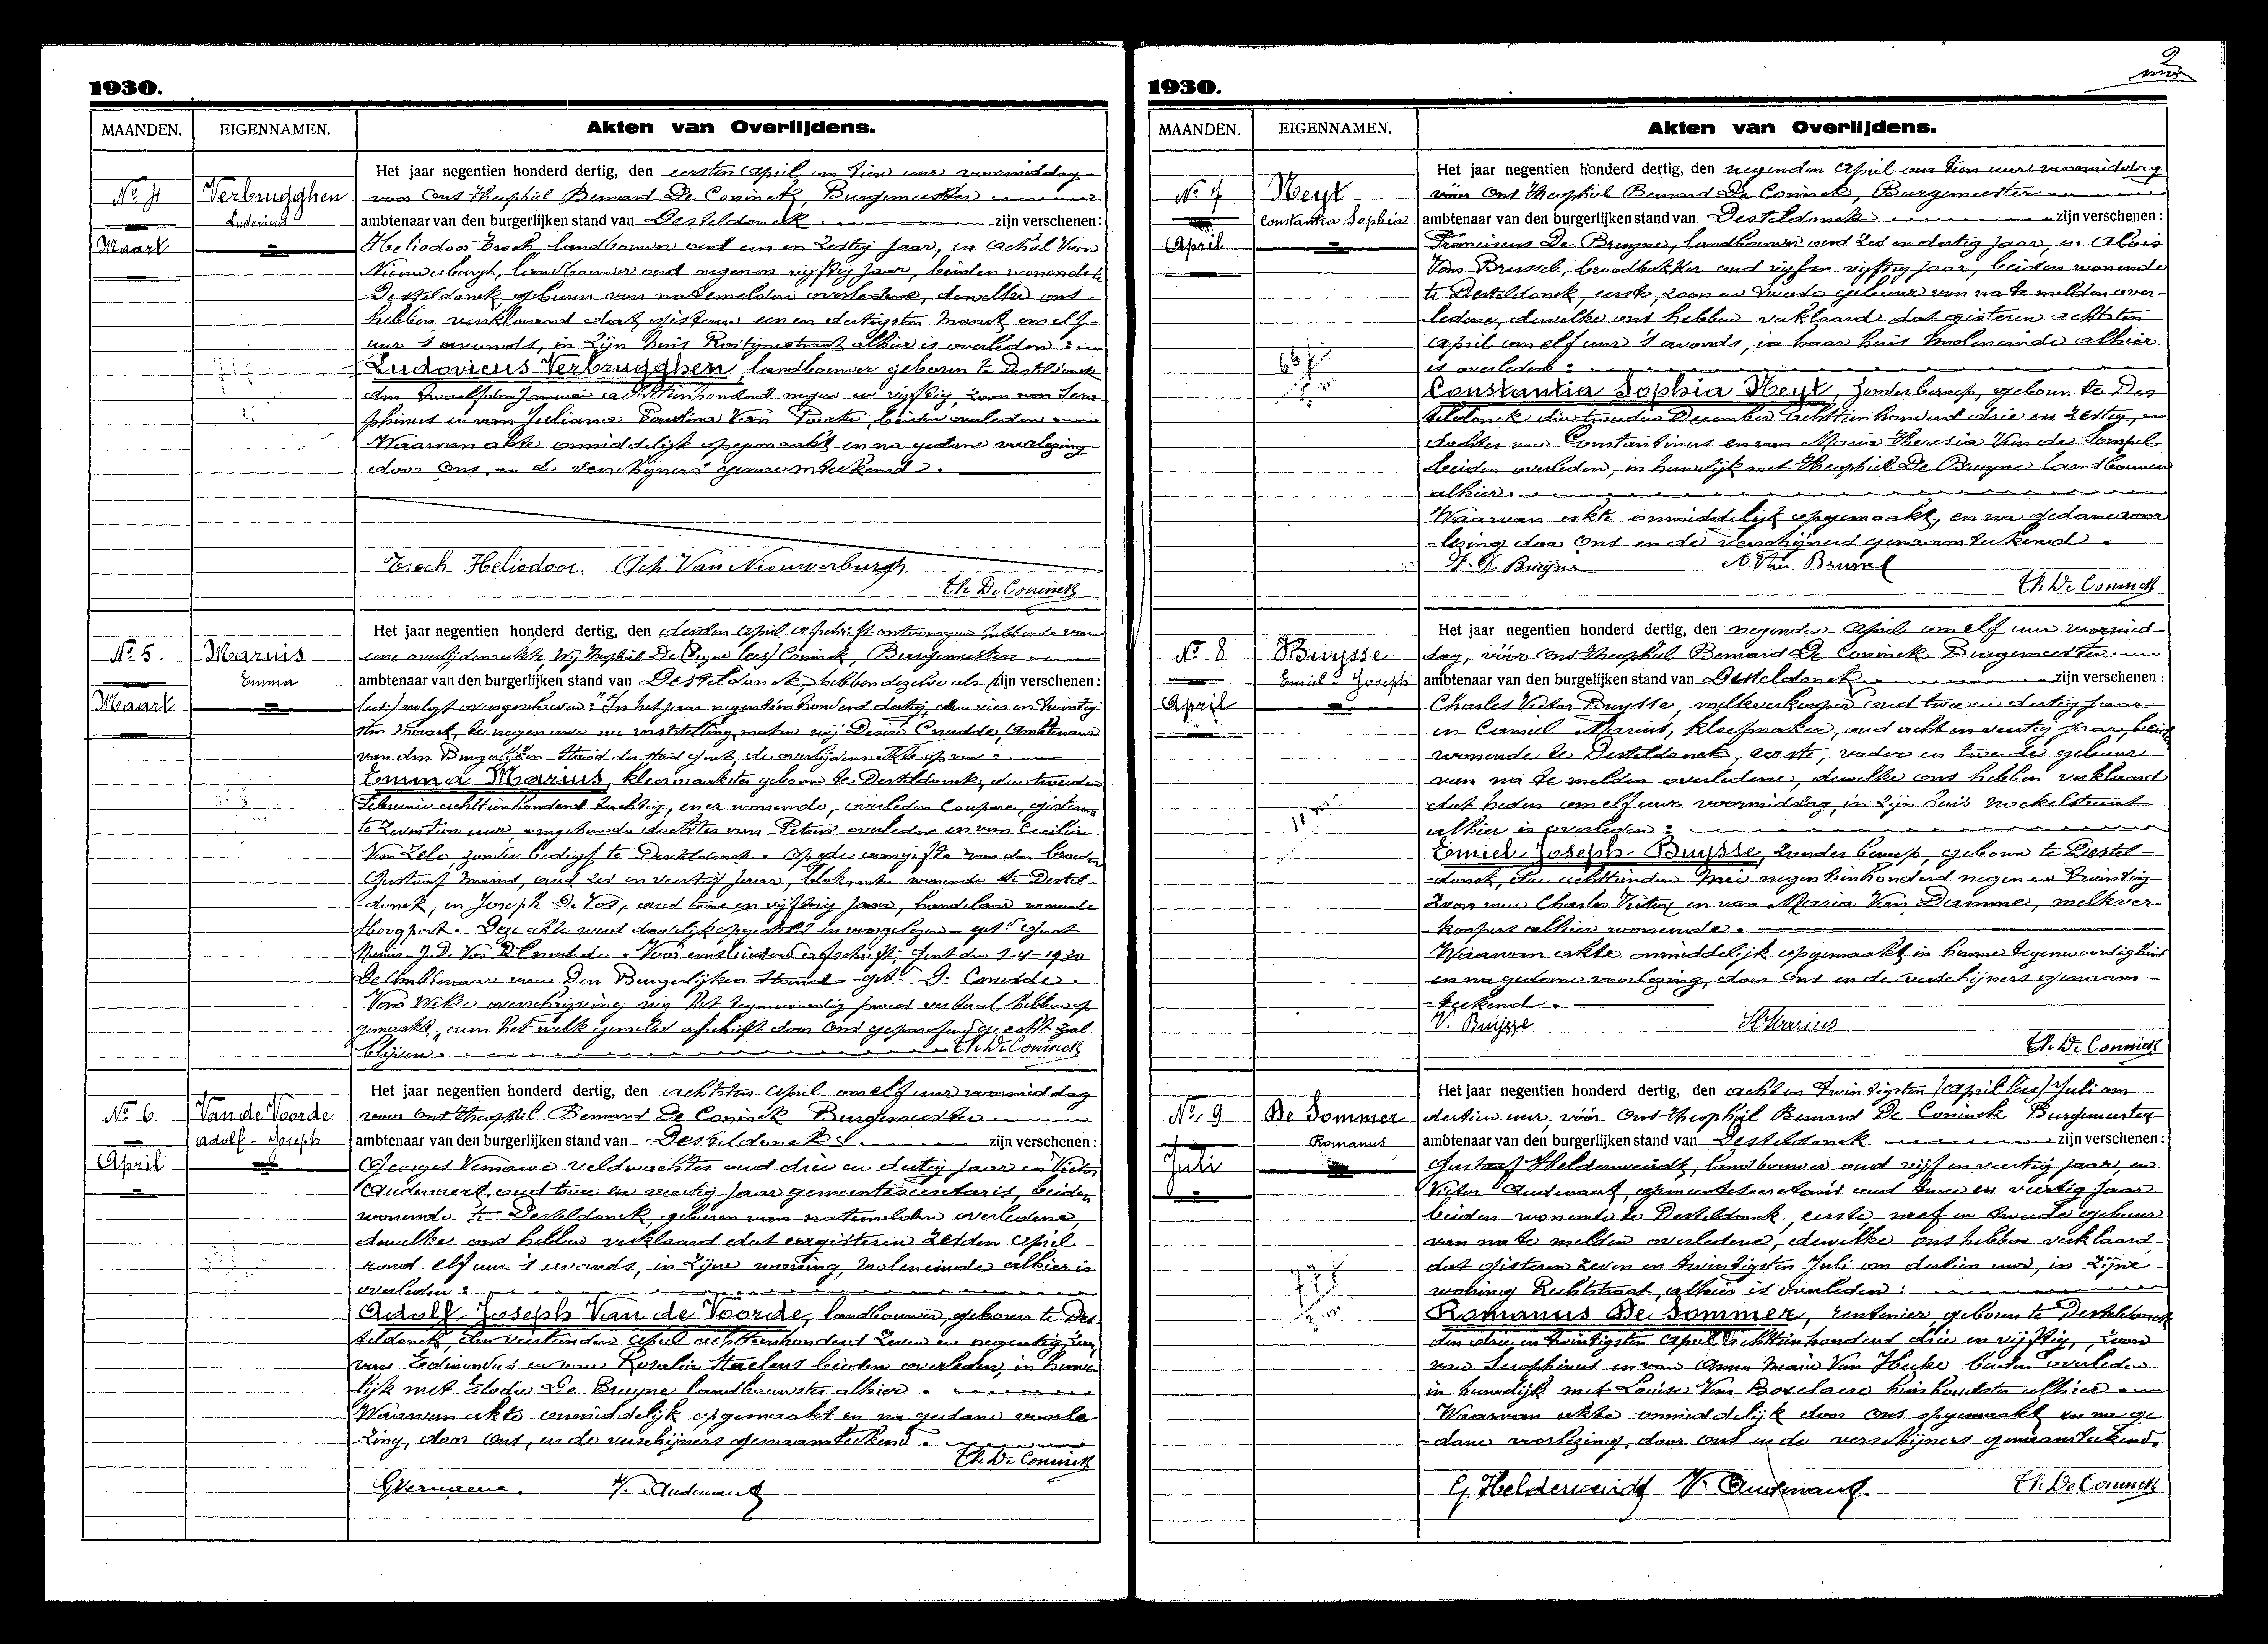 1930.
MAANDEN.
EIGENNAMEN.
Akten van Overlijdens.
No 4
Verbrugghen
Ludovicus
Maart
Het jaar negentien honderd dertig, den eersten April om tien uur voormiddag
voor Ons Theophiel Bernard De Coninck, Burgemeester
ambtenaar van den burgerlijken stand van Desteldonck zijn verschenen:
Heliodoor Troch, landbouwer oud een en zestig jaar, en Achiel Van
Nieuwerburgh, landbouwer oud negen en vijftig jaar, beiden wonende te
Desteldonck, geburen van natemelden overledene, dewelke ons
hebben verklaard dat gisteren een en dertigsten Maart om elf
uur 's avonds, in zijn huis alhier is overleden:
Ludovicus Verbrugghen, landbouwer geboren te Desteldonck
den twaalfden Januari achttienhonderd negen en vijftig, zoon van Sera
phinus en van Juliana Paulina Van beiden overleden
Waarvan akte onmiddelijk opgemaakt en na gedane voorlezing
door Ons, en de verschijners genaamteekend.
Troch Heliodoor Ach. Van Nieuwerburgh
Th. De Coninck
No 5.
Marius
Emma
Maart
Het jaar negentien honderd dertig, den derden April afschrift ontvangen hebbende van
eene overlijdensakte, Wij Theophiel De (lees) Coninck, Burgemeester
ambtenaar van den burgerlijken stand van Desteldonck, hebben dezelve als zijn verschenen:
lees:) volgt overgeschreven: "In het jaar negentien honderd dertig, den vier en twintig
sten maart, te negen ure na vaststelling, maken wij Désiré Cnudde, Ambtenaar
van den Burgerlijken Stand der stad Gent, de overlijdensakte op van:
Emma Marius, kleermaakster geboren te Desteldonck, den tweeden
Februari achttienhonderd tachtig, en er wonende, overleden Coupure, gisteren
te zeventien uur, ongehuwde dochter van Petrus overleden en van Cecilia
Van Zele zonder bedrijf te Desteldonck. Op de aangifte van den broeder
Gustaaf Marius, oud zes en veertig jaar, wonende te Destel
donck, en Joseph De Vos, oud en vijftig jaar, handelaar wonende
Hoogpoort. Deze akte werd dadelijk opgesteld en voorgelezen - get. Gust
Marius - J. De Vos. D. Cnudde. - Voor eensluidend afschrift, Gent den 1-4-1930
De Ambtenaar van Den Burgerlijken Stand - get. D. Cnudde.
Van welke overschrijving wij het tegenwoordig proces verbaal hebben op
gemaakt, aan het welk gemeld afschrift door Ons geparafeerd gehecht zal
blijven. Th. De Coninck
No 6
Van de Voorde
Adolf - Joseph
April
Het jaar negentien honderd dertig, den achtsten April om elf uur voormiddag
voor Ons Theophiel Bernard De Coninck Burgemeester
ambtenaar van den burgerlijken stand van Desteldonck zijn verschenen:
Georges Vernaeve veldwachter oud drie en dertig jaar en Victor
Audenaert, oud twee en veertig jaar gemeentesecretaris, beiden
wonende te Desteldonck, geburen van natemelden overledene,
dewelke ons hebben verklaard dat eergisteren zesden April
rond elf uur 's avonds, in zijne woning, Moleneinde alhier is
overleden:
Adolf Joseph Van de Voorde, landbouwer, geboren te Des
teldonck, den veertienden April achttienhonderd zeven en negentig, zoon
van Edmondus en van Rosalia Staelens beiden overleden, in huwe
lijk met Elodie De Bruyne landbouwster alhier.
Waarvan akte onmiddelijk opgemaakt en na gedane voorle
zing, door Ons, en de verschijners genaamteekend.
Th. De Coninck
GVernaeve. V. Audenaert
2
1930.
MAANDEN.
EIGENNAMEN.
Akten van Overlijdens.
No 7
Heyt
Constantia Sophia
April
Het jaar negentien honderd dertig, den negenden April om tien uur voormiddag
vóór Ons Theophiel Bernard De Coninck, Burgemeester
ambtenaar van den burgerlijken stand van Desteldonck zijn verschenen:
Franciscus De Bruyne, landbouwer oud zes en dertig jaar, en Alois
Van Brussel, broodbakker oud vijf en vijftig jaar, beiden wonende
te Desteldonck, eerste, zoon en tweede gebuur van na te melden over
ledene, dewelke ons hebben verklaard dat gisteren achtsten
April om elf uur 's avonds, in haar huis Moleneinde alhier
is overleden:
Constantia Sophia Heyt, zonder beroep, geboren te Des
teldonck den tweeden December achttienhonderd drie en zestig,
dochter van Constantinus en van Maria Theresia Van de Sompel
beiden overleden, in huwelijk met Theophiel De Bruyne landbouwer
alhier.
Waarvan akte onmiddelijk opgemaakt, en na gedane voor
lezing door Ons en de verschijners genaamteekend.
F. De Bruyne A Van Brussel
Th. De Coninck
No 8
Buysse
Emiel - Joseph
April
Het jaar negentien honderd dertig, den negenden April om elf uur voormid
dag, vóór Ons Theophiel Bernard De Coninck Burgemeester
ambtenaar van den burgerlijken stand van Desteldonck zijn verschenen:
Charles Victor Buysse, melkverkooper oud twee en dertig jaar
en Camiel Marius, kleefmaker, oud acht en veertig jaar, beiden
wonende te Desteldonck, eerste, vader en tweede gebuur
van na te melden overledene, dewelke ons hebben verklaard
dat heden om elf uur voormiddag, in zijn huis
alhier is overleden:
Emiel Joseph Buysse, zonder beroep, geboren te Destel
donck, den achttienden Mei negentienhonderd negen en twintig
zoon van Charles Victor en van Maria Van Damme, melkver
koopers alhier wonende.
Waarvan akte onmiddelijk opgemaakt in hunne tegenwoordigheid
en na gedane voorlezing, door Ons en de verschijners genaam
teekend.
V. Buysse Marius
Th. De Coninck
No 9
De Sommer
Romanus
Juli
Het jaar negentien honderd dertig, den acht en twintigsten (April lees) Juli om
dertien uur, vóór Ons Theophiel Bernard De Coninck Burgemeester
ambtenaar van den burgerlijken stand van Desteldonck zijn verschenen:
Gustaaf Helderweirdt, landbouwer oud vijf en veertig jaar, en
Victor Audenaert, gemeentesecretaris oud twee en veertig jaar
beiden wonende te Desteldonck, eerste neef en tweede gebuur
van na te melden overledene, dewelke ons hebben verklaard
dat gisteren zeven en twintigsten Juli om dertien uur, in zijne
woning Rechtstraat, alhier is overleden:
Romanus De Sommer, rentenier geboren te Desteldonck
den drie en twintigsten April achttienhonderd drie en vijftig, zoon
van Seraphinus en van Anna Marie Van Hecke beiden overleden
in huwelijk met Louise Van Boxelaere huishoudster alhier.
Waarvan akte onmiddelijk door Ons opgemaakt en na ge
dane voorlezing, door Ons en de verschijners genaamteekend.
G. Helderweirdt V. Audenaert Th. De Coninck